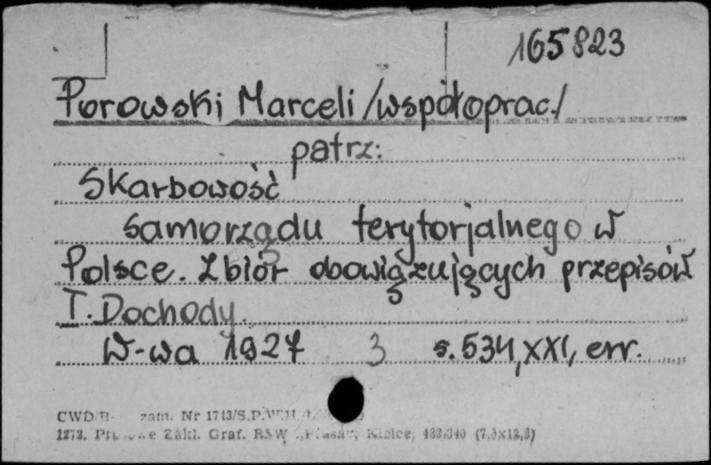 165823
Porowski Marceli /współoprac./
patrz:
Skarbowość
samorządu terytorjalnego w
Polsce. Zbiór obowiązujących przepisów
T. Dochody.
W-wa 1927 3 s. 534, XXI, err.
CWD/B- zam. Nr 1713/S.P.
1273. Zakł. Graf. RSW „Prasa", Kielce, (7,5x12,5)